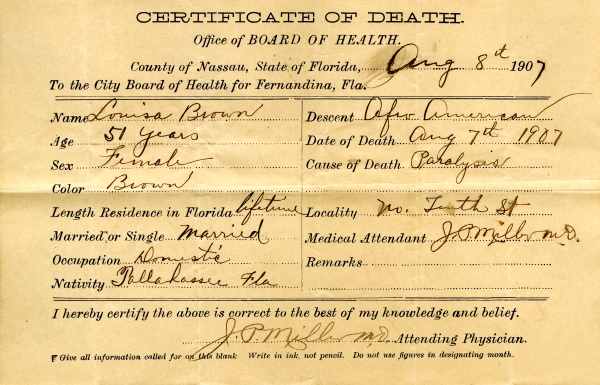 CERTIFICATE OF DEATH.
Office of BOARD OF HEALTH.
County of Nassau, State of Florida, Aug 8th 1907
To the City Board of Health for Fernandina, Fla.
Name Louisa Brown
Age 51 years
Sex Female
Color Brown
Length Residence in Florida lifetime
Married or Single Married
Occupation Domestic
Nativity Tallahassee Fla
Descent Afro American
Date of Death Aug 7th 1907
Cause of Death Paralysis
Locality No. Tenth St
Medical Attendant J. P Miller M.D.
Remarks
I hereby certify the above is correct to the best of my knowledge and belief.
J. P Miller M.D. Attending Physician.
Give all information called for on this blank Write in ink, not pencil. Do not use figures in designating month.